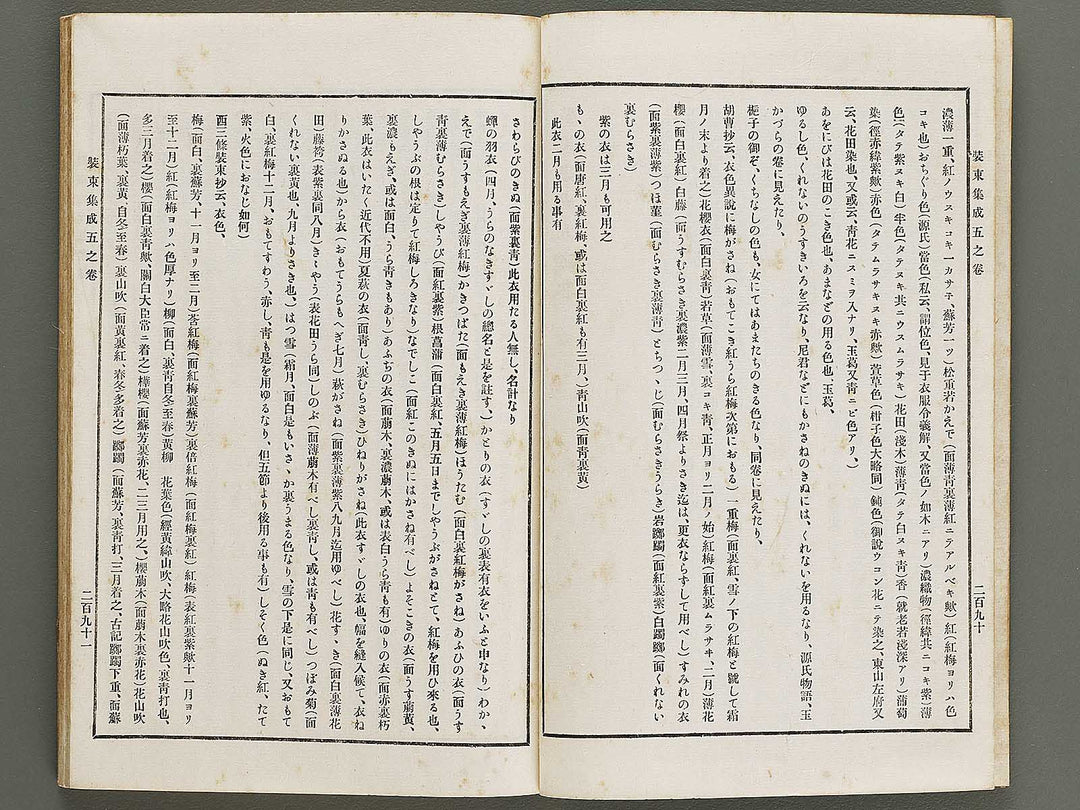 裝束集成五之卷
二百九十
濃薄一重、紅ノウスキコキ一カサテ、蘇芳一ツ)松重若かえで(面薄靑裏薄紅ニテアルベキ歟)紅(紅梅ヨリハ色
コキ也)おちくり色(源氏)當色(私云、謂位色、見于衣服令義解、又當色ノ如木ニアリ)濃織物(徑緯共ニコキ紫)薄
色(タテ紫ヌキ白)半色(タテヌキ共ニウスムラサキ)花田(淺木)薄靑(タテ白ヌキ靑)香(就老若淺深アリ)蒲萄
染(徑赤緯紫歟)赤色(タテムラサキヌキ赤歟)萱草色(柑子色大略同)鈍色(御說ウコン花ニテ染之、東山左府又
云、花田染也、又或云、靑花ニスミヲ入ナリ、玉葛又靑ニビ色アリ、)
あをにびは花田のこき色也、あまなどの用る色也、玉葛、
ゆるし色、くれないのうすきいろを云なり、尼君などにもかさねのきぬには、くれないを用るなり、源氏物語、玉
かづらの卷に見えたり、
梔子の御ぞ、くちなしの色も、女にてはあまたちのきる色なり、同卷に見えたり、
胡曹抄云、衣色異說に梅がさね(おもてこき紅うら紅梅次第におもる)一重梅(面裏紅、雪ノ下の紅梅と號して霜
月ノ末より着之)花櫻衣(面白裏靑)若草(面薄雲、裏コキ靑、正月ヨリ二月ノ始)紅梅(面紅裏ムラサキ、二月)薄花
櫻(面白裏紅)白藤(面うすむらさき裏濃紫二月三月、四月祭よりさき迄は、更衣ならずして用べし)すみれの衣
(面紫裏薄紫)つほ菫(面むらさき裏薄靑)とちつゝじ(面むらさきうらき)岩躑躅(面紅裏紫)白躑躅(面くれない
裏むらさき)
紫の衣は三月も可用之
もゝの衣(面唐紅、裏紅梅、或は面白裏紅も有三月、)靑山吹(面靑裏黃)
此衣二月も用る事有
さわらびのきぬ(面紫裏靑)此衣用たる人無し、名計なり
蟬の羽衣(四月、うらのなきすゞしの總名と是を註す、)かとりの衣(すゞしの裏表有衣をいふと申なり)わか、
えで(面うすもえぎ裏薄紅梅)かきつばた(面もえき裏薄紅梅)ほうたむ(面白裏紅梅がさね)あふひの衣(面うす
靑裏薄むらさき)しやうび(面紅裏紫)根菖蒲(面白裏紅、五月五日までしやうぶがさねとて、紅梅を用ひ來る也、
しやうぶの根は定りて紅梅しろきなり)なでしこ(面紅このきぬにはかさね有べし)よそこきの衣(面うす萠黃、
裏濃もえぎ、或は面白、うら靑きもあり)あふちの衣(面萠木、裏濃萠木、或は表白うら靑も有)ゆりの衣(面赤裏朽
葉、此衣はいたく近代不用)夏萩の衣(面靑し、裏むらさき)ひねりがさね(此衣すゞしの衣也、幅を縫入候て、衣ね
りかさぬる也)から衣(おもてうらもへぎ七月)萩がさね(面紫裏薄紫八九月迄用ゆべし)花すゝき(面白裏薄花
田)藤袴(表紫裏同八月)きゝやう(表花田うら同)しのぶ(面薄萠木有べし裏靑し、或は靑も有べし)つぼみ菊(面
くれない裏黃也、九月よりさき也、)はつ雪(霜月、面白是もいさゝか裏うまる色なり、雪の下是に同じ、又おもて
白、裏紅梅十二月、おもてすわう、赤し、靑も是を用ゆるなり、但五節より後用る事も有)しそく色(ぬき紅、たて
紫、火色におなじ如何)
西三條裝束抄云、衣色、
梅(面白、裏蘇芳、十一月ヨリ至二月)莟紅梅(面紅梅裏蘇芳)裏倍紅梅(面紅梅裏紅)紅梅(表紅裏紫歟十一月ヨリ
至十二月)紅(紅梅ヨリハ色厚ナリ)柳(面白、裏靑自冬至春)黃柳　花葉色(經黃緯山吹、大略花山吹色、裏靑打也、
多三月着之)櫻(面白裏靑歟、關白大臣常ニ着之)樺櫻(面蘇芳裏赤花、二三月用之、)櫻萠木(面萠木裏赤花)花山吹
(面薄朽葉、裏黃、自冬至春)裏山吹(面黃裏紅、春冬多着之)躑躅(面蘇芳、裏靑打、三月着之、古記躑躅下重、面蘇
裝束集成五之卷
二百九十一